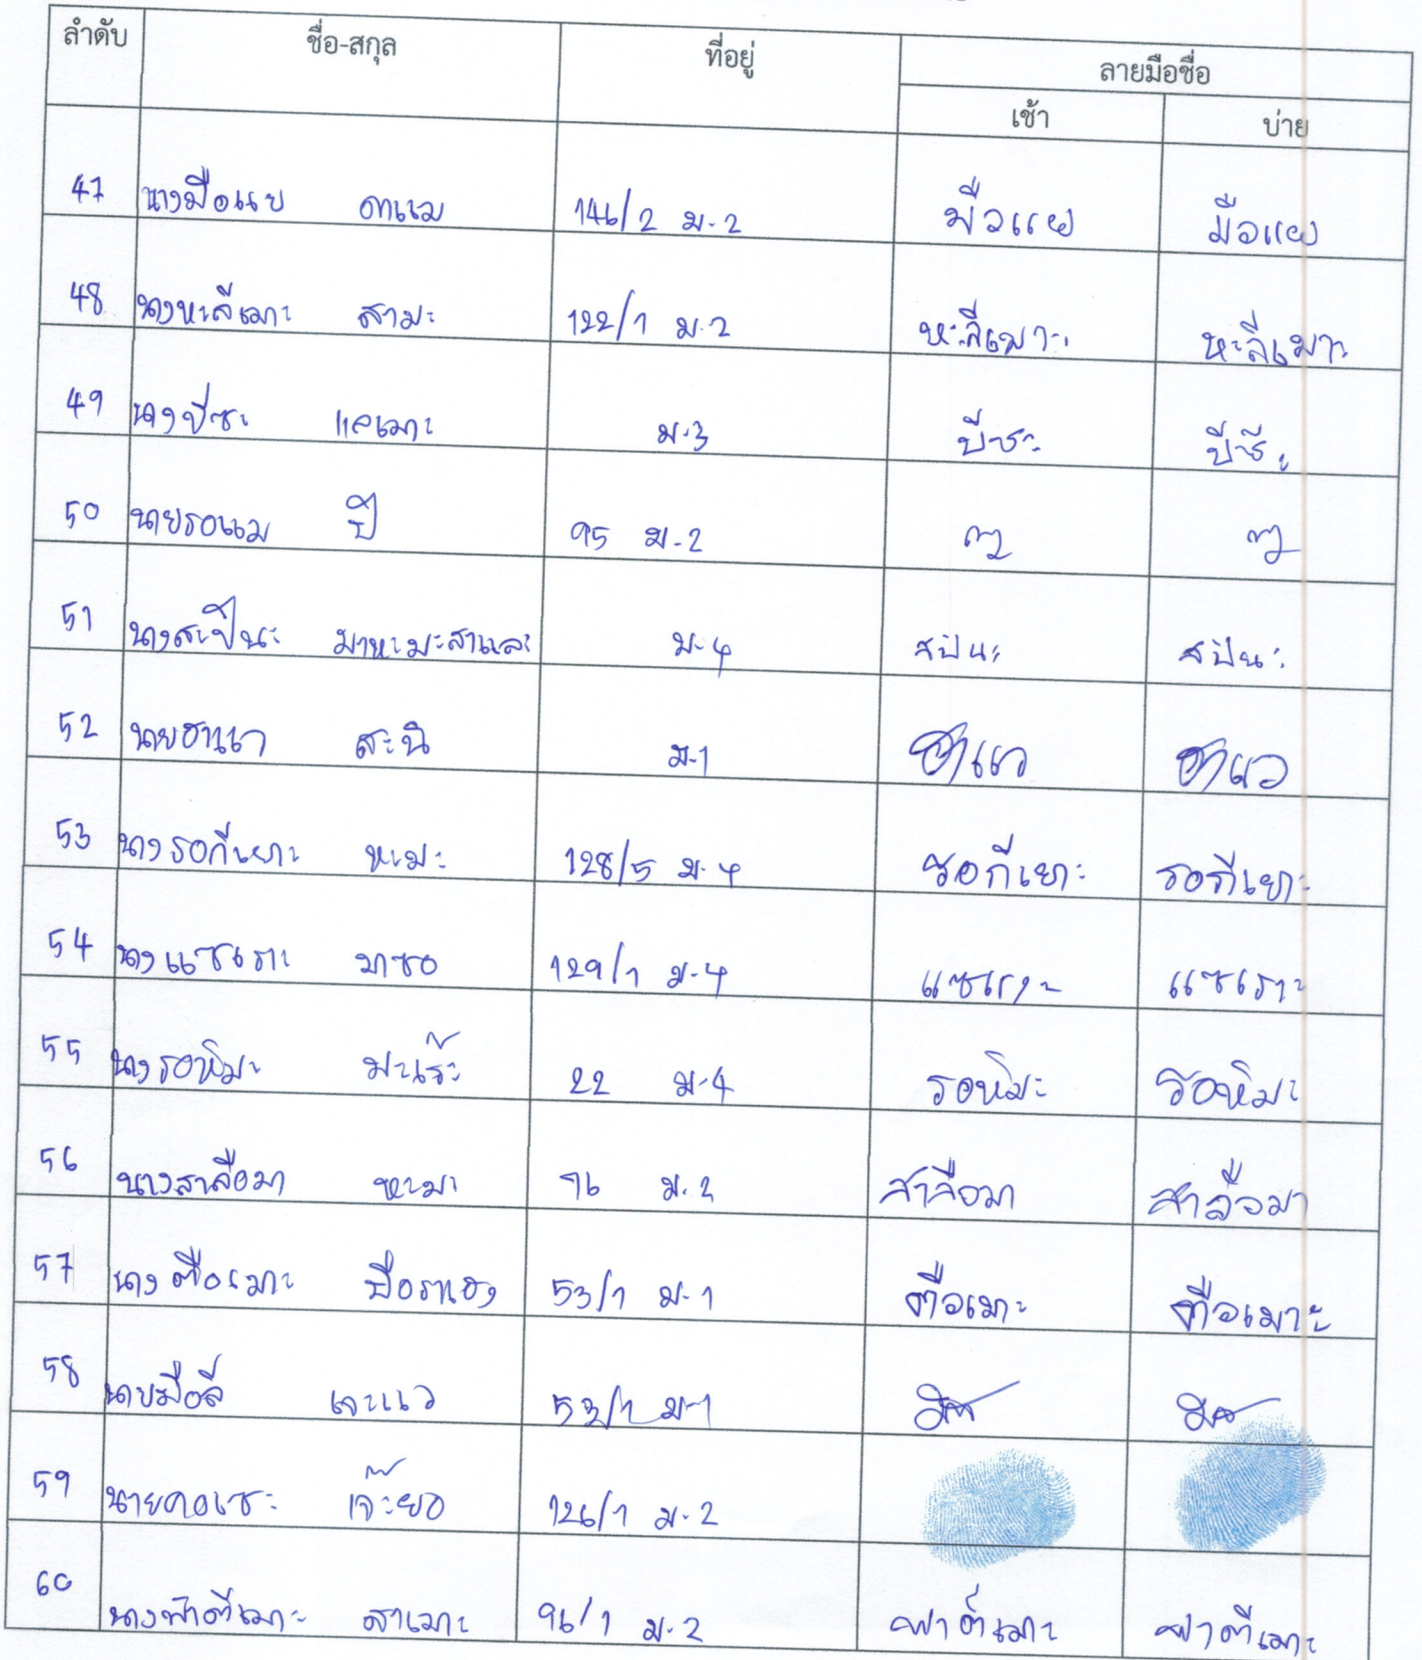 ลำดับ ชื่อ-สกุล ที่อยู่ ลายมือชื่อ
เช้า บ่าย
47 นางมือแย ดาแม 146/2 ม.2 มือแย มือแย
48 นางหะลีเมาะ สามะ 122/1 ม.2 หะลีเมาะ หะลีเมาะ
49 นางบีซะ แลเมาะ ม.3 บีซะ บีซะ
50 นายรอแม ปิ 95 ม.2
51 นางสะปีนะ มาหะมะสาและ ม.4 สปีนะ สปีนะ
52 นายฮาแว สะนิ ม.1 ฮาแว ฮาแว
53 นางรอกีเยาะ หะมะ 128/5 ม.4 รอกีเยาะ รอกีเยาะ
54 นางแซเราะ มาซอ 129/1 ม.4 แซเราะ แซเราะ
55 นางรอหิมะ มะเร๊ะ 22 ม.4 รอหิมะ รอหิมะ
56 นางสาลือมา หะมะ 76 ม.2 สาลือมา สาลือมา
57 นางตือเมาะ บือราเฮง 53/1 ม.1 ตือเมาะ ตือเมาะ
58 นายมือลี เจะแว 53/1 ม.1
59 นายคอเซะ เจ๊ะยอ 126/1 ม.2
60 นางฟาตีเมาะ สาเมาะ 96/1 ม.2 ฟาตีเมาะ ฟาตีเมาะ